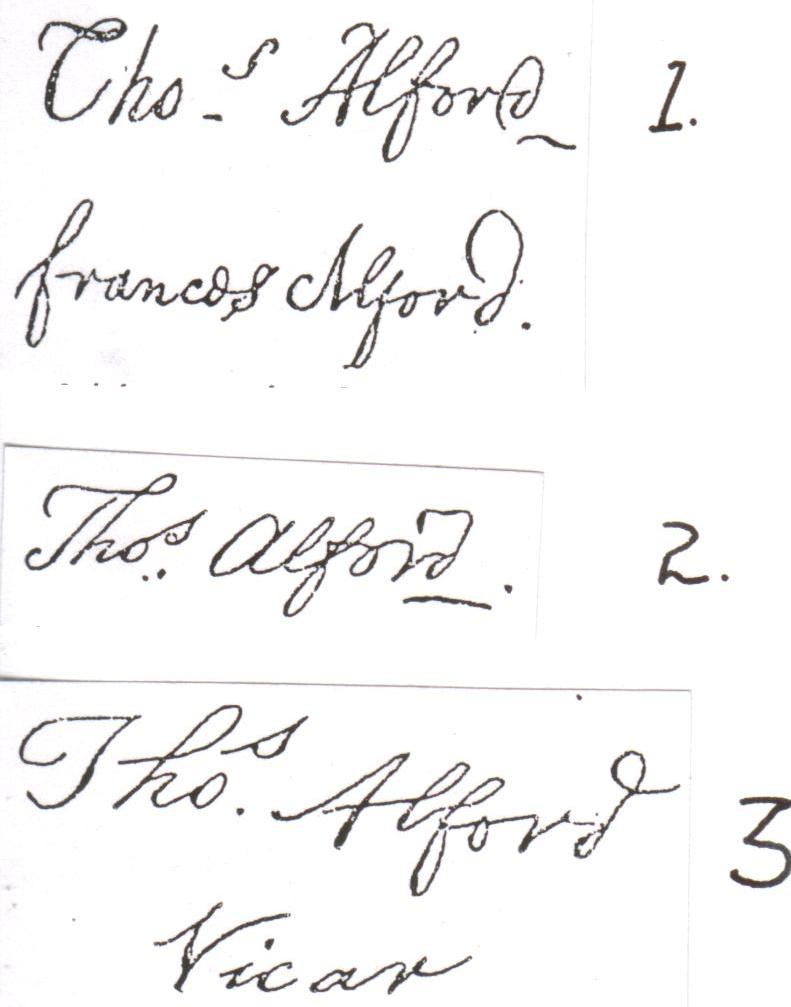 Tho.s Alford 1.
frances Alford.
Tho.s Alford. 2.
Tho.s Alford 3
Vicar